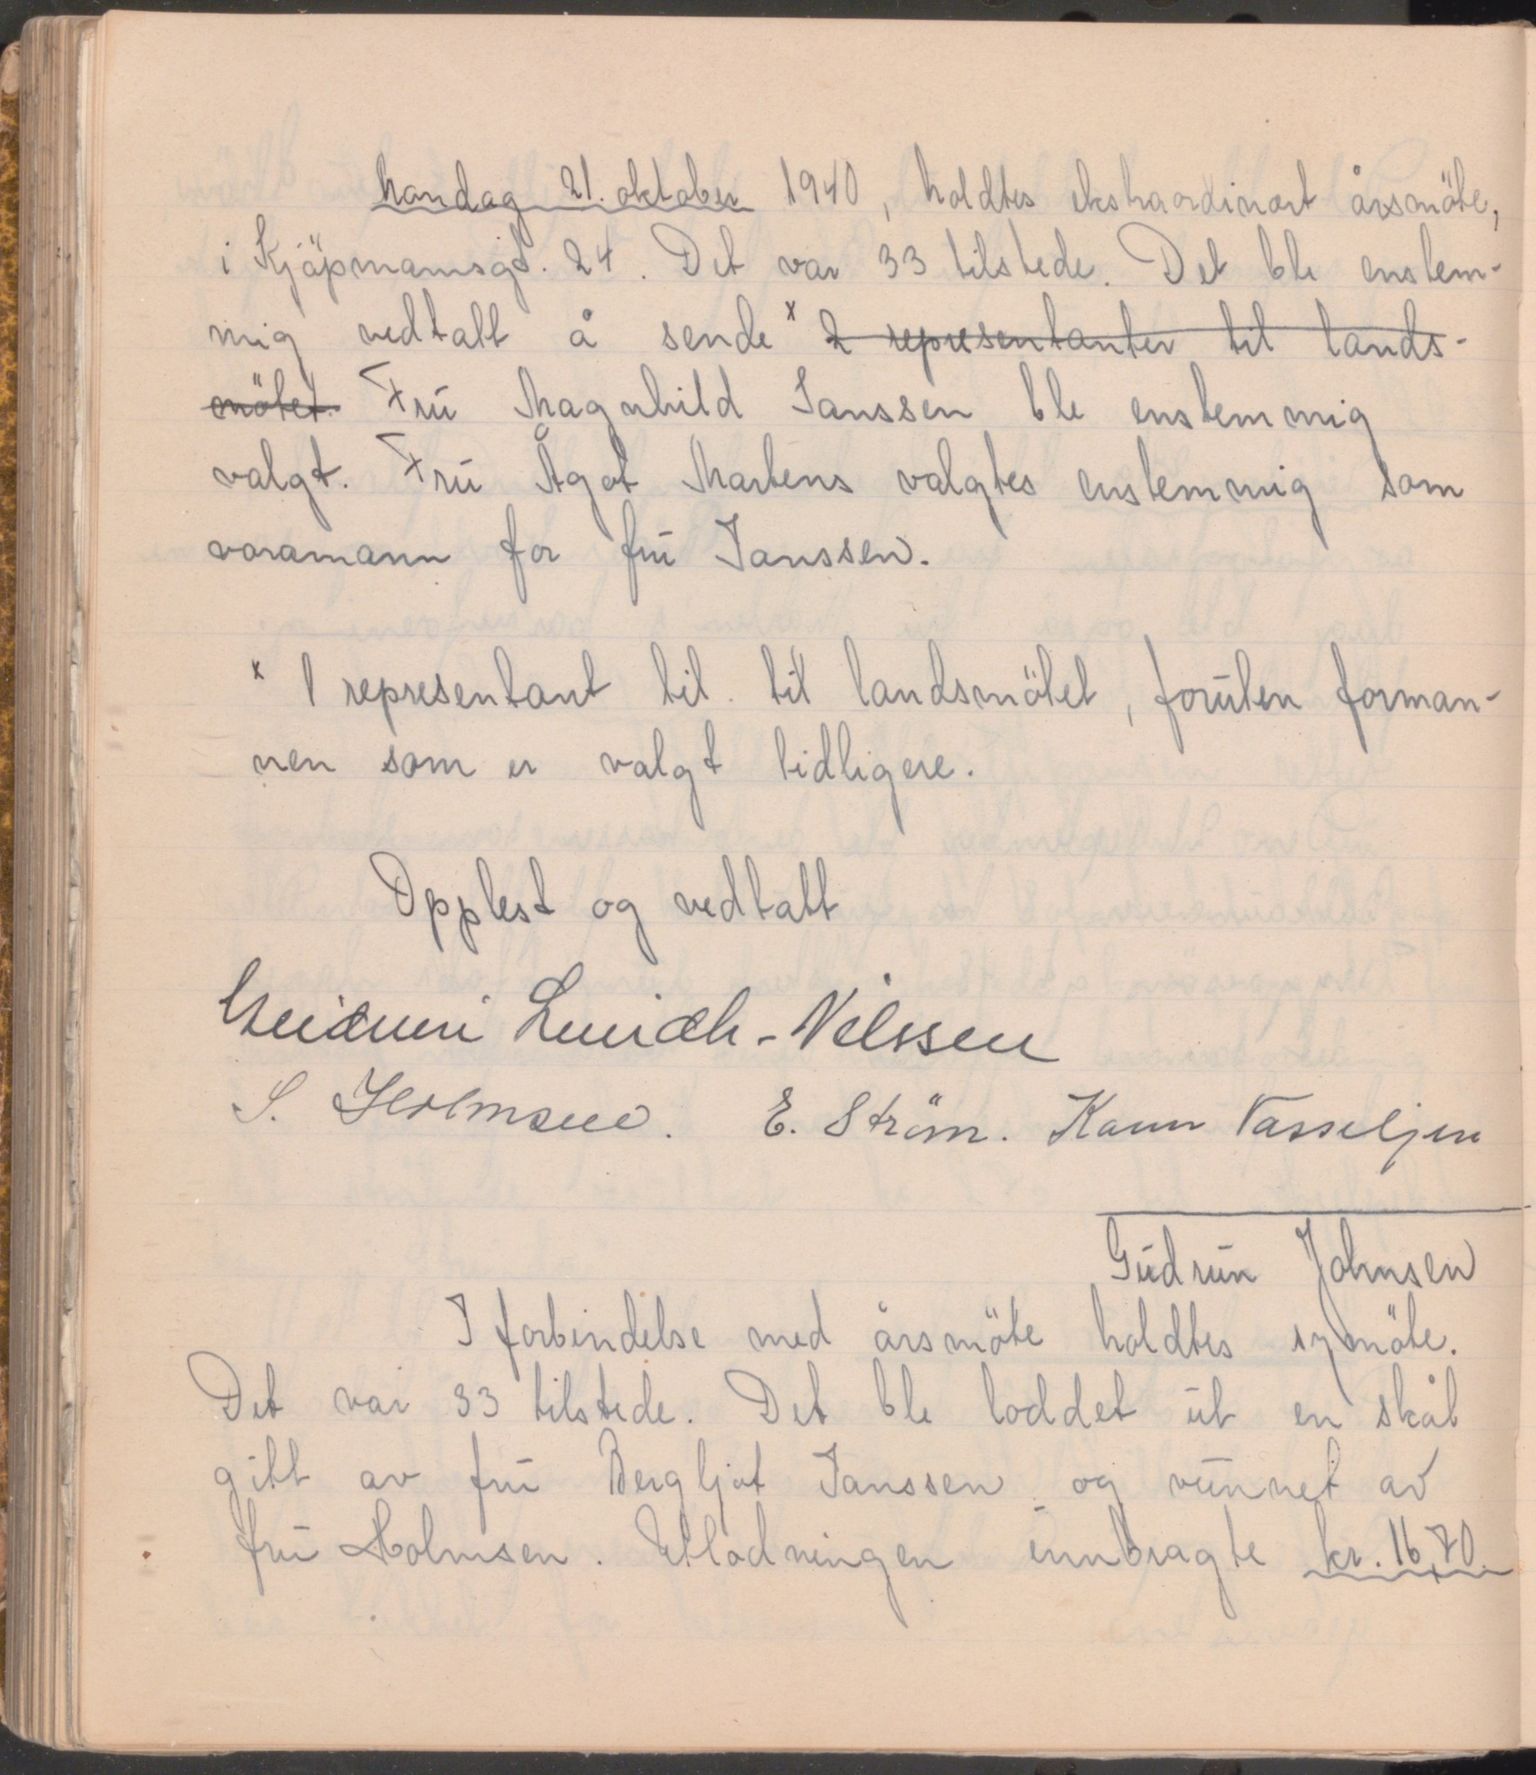 Mandag 21. oktober 1940, holdtes ekstraordinært årsmöte,
i Kjöpmannsgt. 24. Det var 33 tilstede. Det ble enstem-
mig vedtatt å sende x 2 representanter til lands-
mötet. Fru Magnhild Janssen ble enstemmig
valgt. Fru Ågot Martens valgtes enstemmig som
varamann for fru Janssen.
x 1 representant til. til landsmötet, foruten forman-
nen som er valgt tidligere.
Opplest og vedtatt
Lwidh-Nilssen
S. Holmsen. E. Ström. Karin Vasseljen
Gudrun Johnsen
I forbindelse med årsmöte holdtes symöte.
Det var 33 tilstede. Det ble loddet ut en skål
gitt av fru Bergljot Janssen og vunnet av
fru Holmsen. Utlodningen innbragte kr. 16,70.